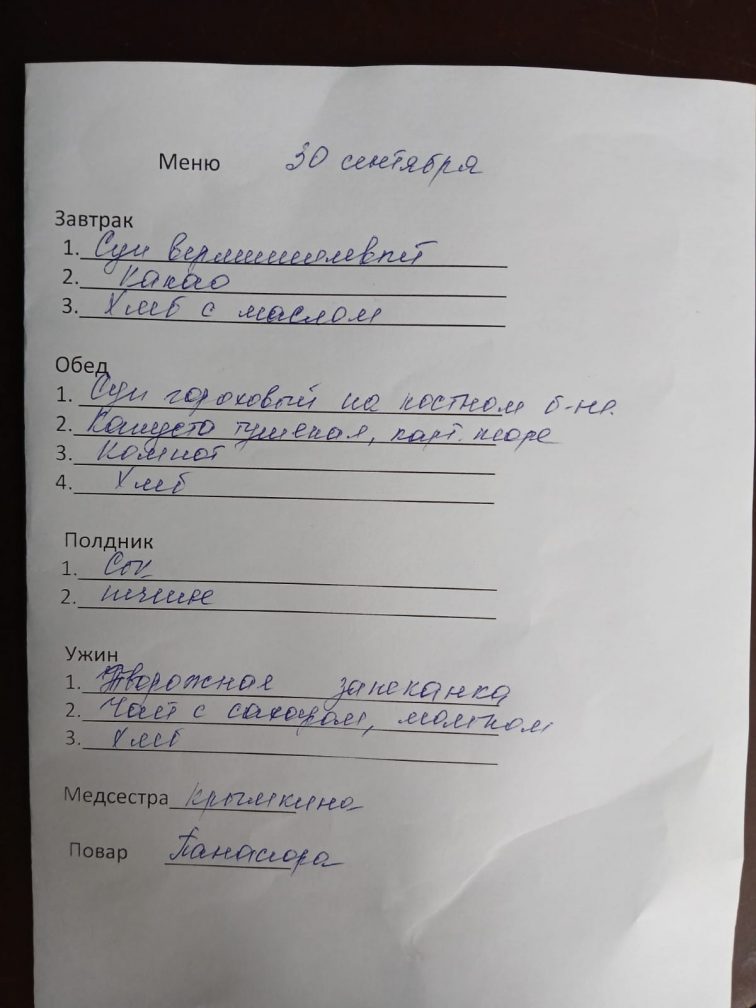 Меню 30 сентября
Завтрак
1. Суп вермишелевый
2. Какао
3. Хлеб с маслом
Обед
1. Суп гороховый на костном б-не.
2. Капуста тушеная, карт. пюре
3. Компот
4. Хлеб
Полдник
1. Сок
2. печенье
Ужин
1. Творожная запеканка
2. Чай с сахаром, молоком
3. Хлеб
Медсестра Крымкина
Повар